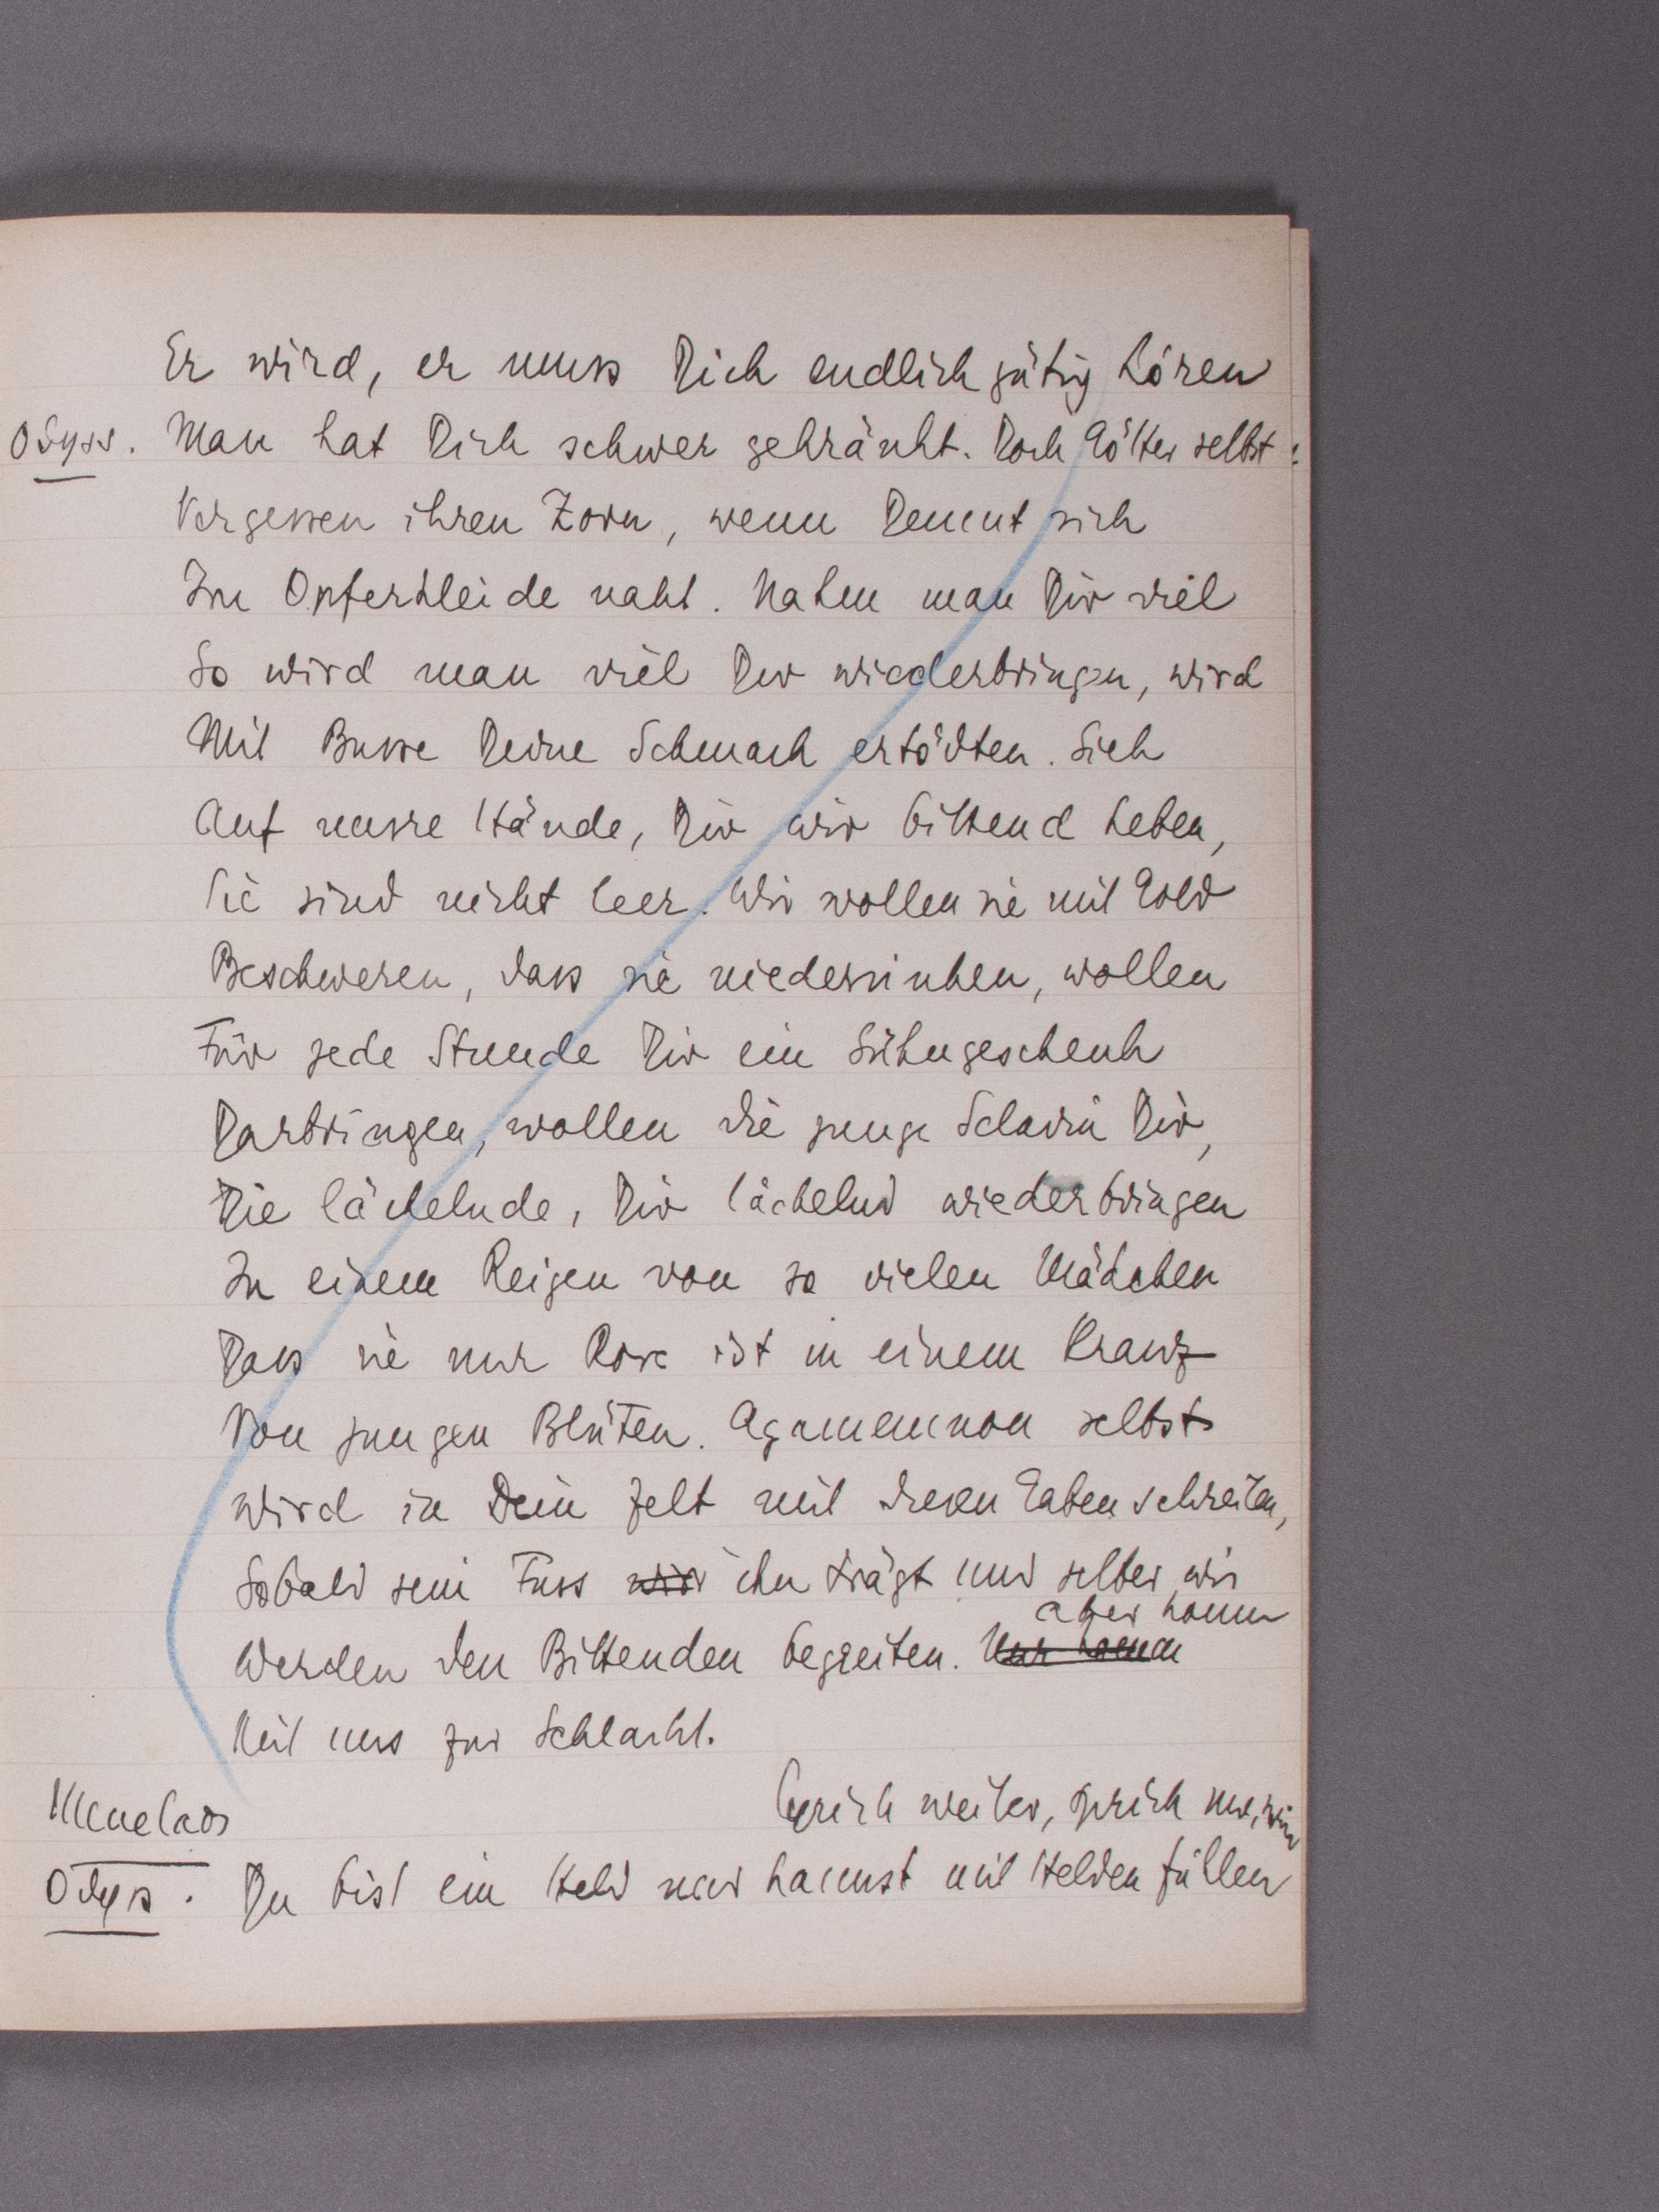 Er wird, er muss Dich endlich gütig hören
Odyss. Man hat Dich schwer gekränkt. Doch Götter selbst:
Vergessen ihren Zorn, wenn Demut sich
Im Opferkleide naht. Nahm man Dir viel
So wird man viel Dir wiederbringen, wird
Mit Busse Deine Schmach ertödten. Sieh
Auf unsre Hände, Dir wir bittend heben,
Sie sind nicht leer. Wir wollen sie mit Gold
Beschweren, dass sie niedersinken, wollen
Für jede Stunde Dir ein Sühngeschenk
Darbringen, wollen die junge Sclavin Dir,
Die lächelnde, Dir lächelnd wiederbringen
In einem Reigen von so vielen Mädchen
Dass sie nur Rose ist in einem Kranz
Von jungen Blüten. Agamemnon selbst
wird in Dein Zelt mit diesen Gaben schreiten,
Sobald sein Fuss wir ihn trägt und selber wir
aber komm
Werden den Bittenden begleiten. Nur komm
Mit uns zur Schlacht.
Menelaos Sprich weiter, sprich nur,
Odyss. Du bist ein Held und kannst mit Helden fühlen